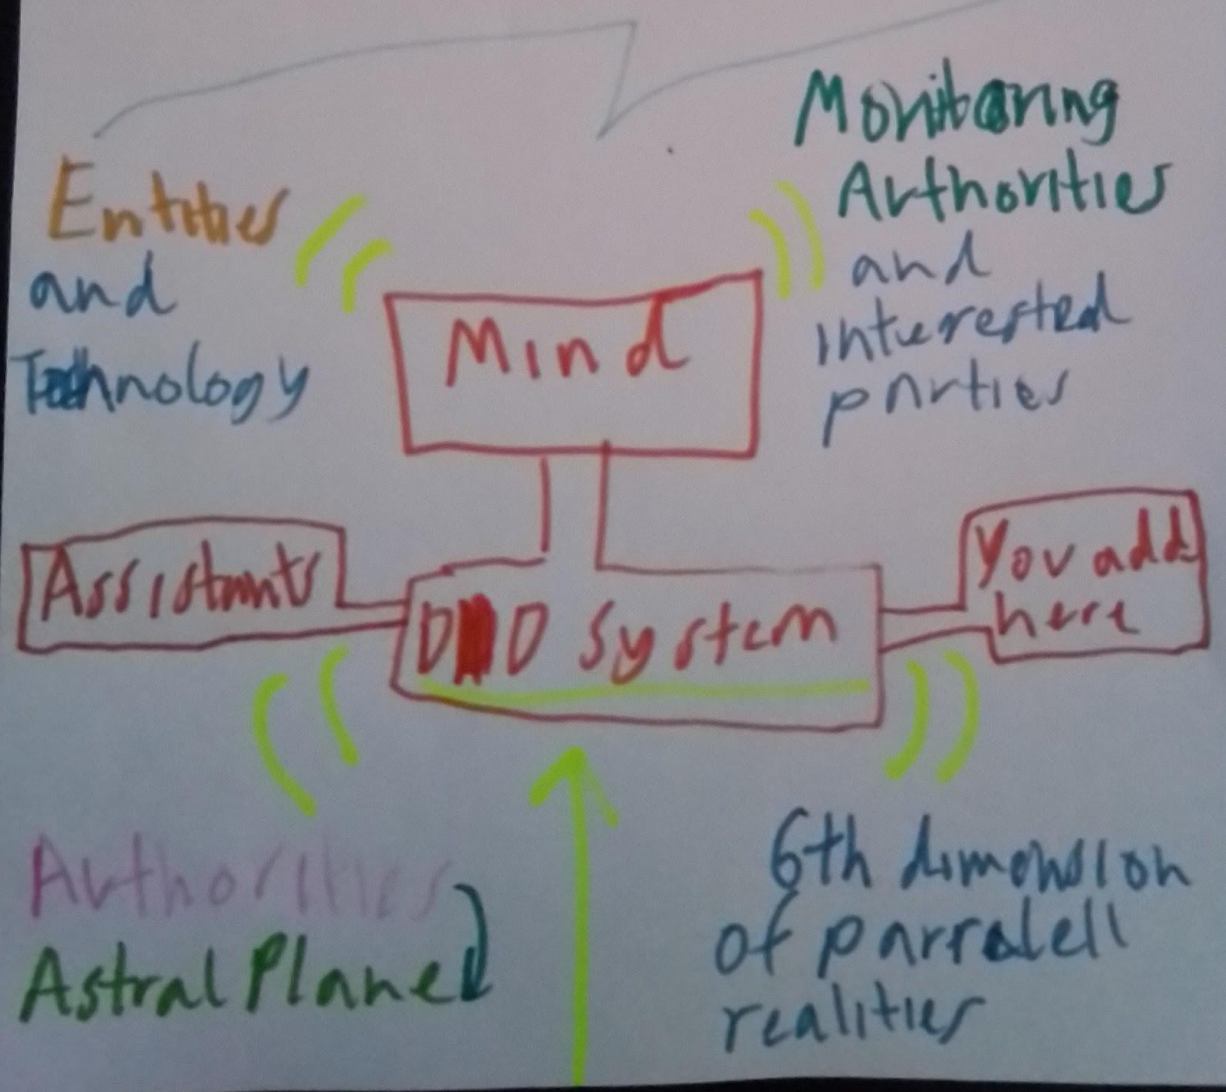 Entities
and
Technology
Monitoring
Authorities
and
interested
parties
Mind
Assistants
System
You add
here
Authorities
Astral Plane
6th dimension
of parralell
realities